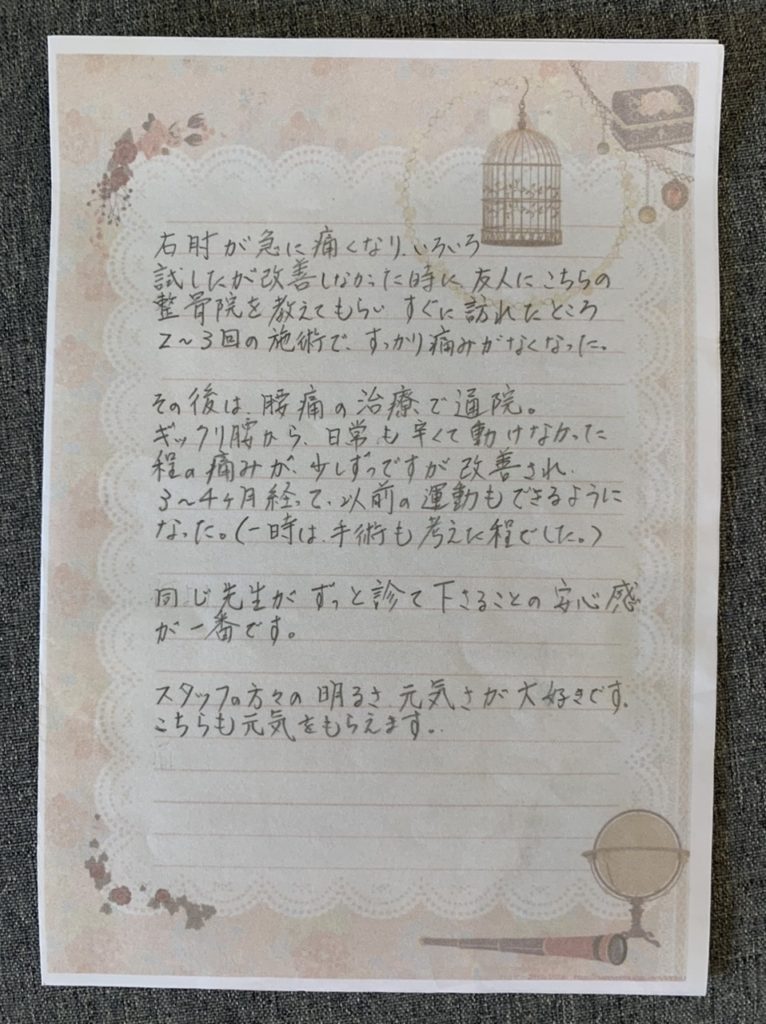 右肘が急に痛くなり、いろいろ
試したが改善しなかった時に、友人にこちらの
整骨院を教えてもらい すぐに訪れたところ
2〜3回の施術で、すっかり痛みがなくなった。
その後は、腰痛の治療で通院。
ギックリ腰から、日常も辛くて動けなかった
程の痛みが、少しずつですが改善され、
3〜4ヶ月経って、以前の運動もできるように
なった。(一時は、手術も考えた程でした。)
同じ先生が ずっと診て下さることの 安心感
が一番です。
スタッフの方々の 明るさ、元気さが大好きです。
こちらも元気をもらえます。